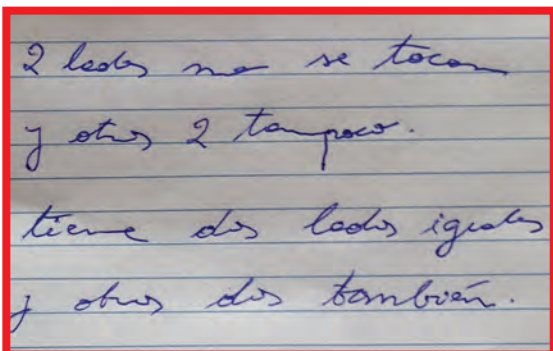 2 lados no se tocan
y otros 2 tampoco.
tiene dos lados iguales
y otros dos también.